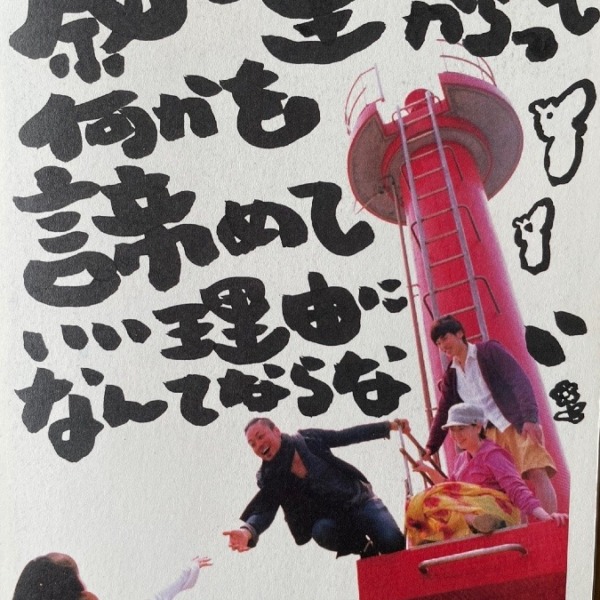 からって
何かを
諦めて
いい理由に
なんてならない